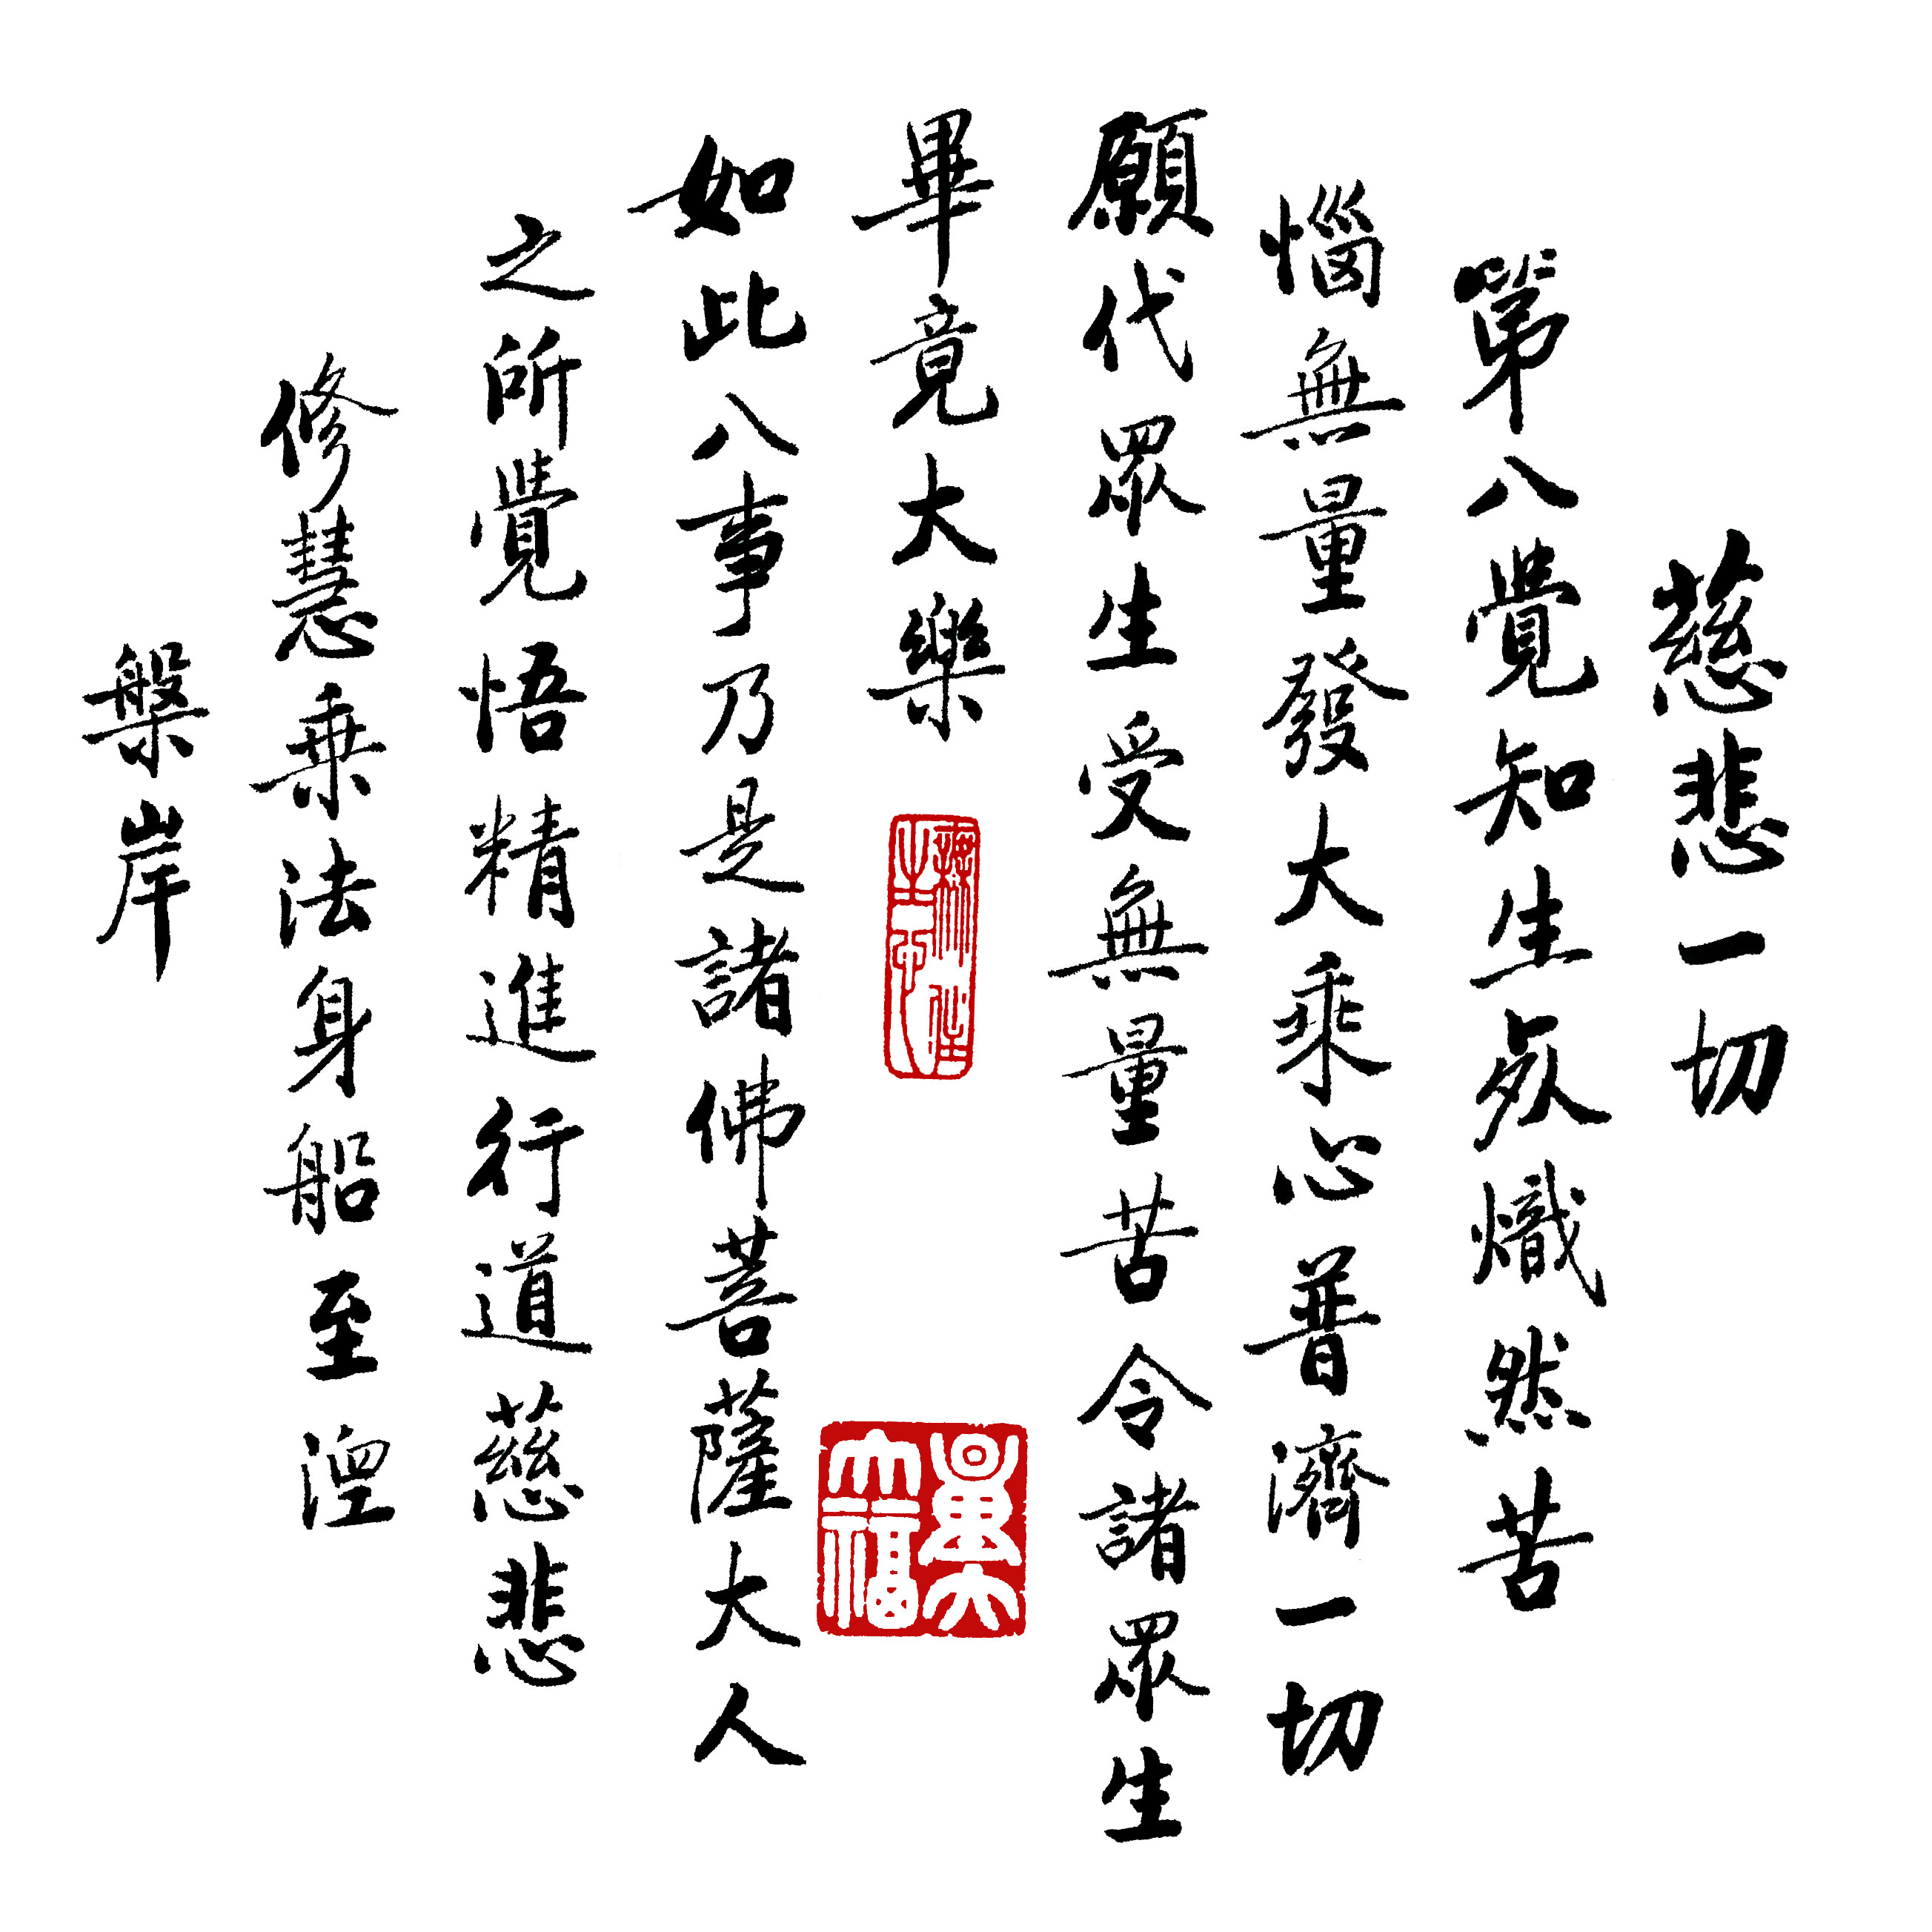 慈悲一切
第八覺知生死熾然苦
惱無量發大乘心普濟一切
願代眾生受無量苦令諸眾生
畢竟大樂
如此八事乃是諸佛菩薩大人
之所覺悟精進行道慈悲
修慧乘法身船至涅
槃岸